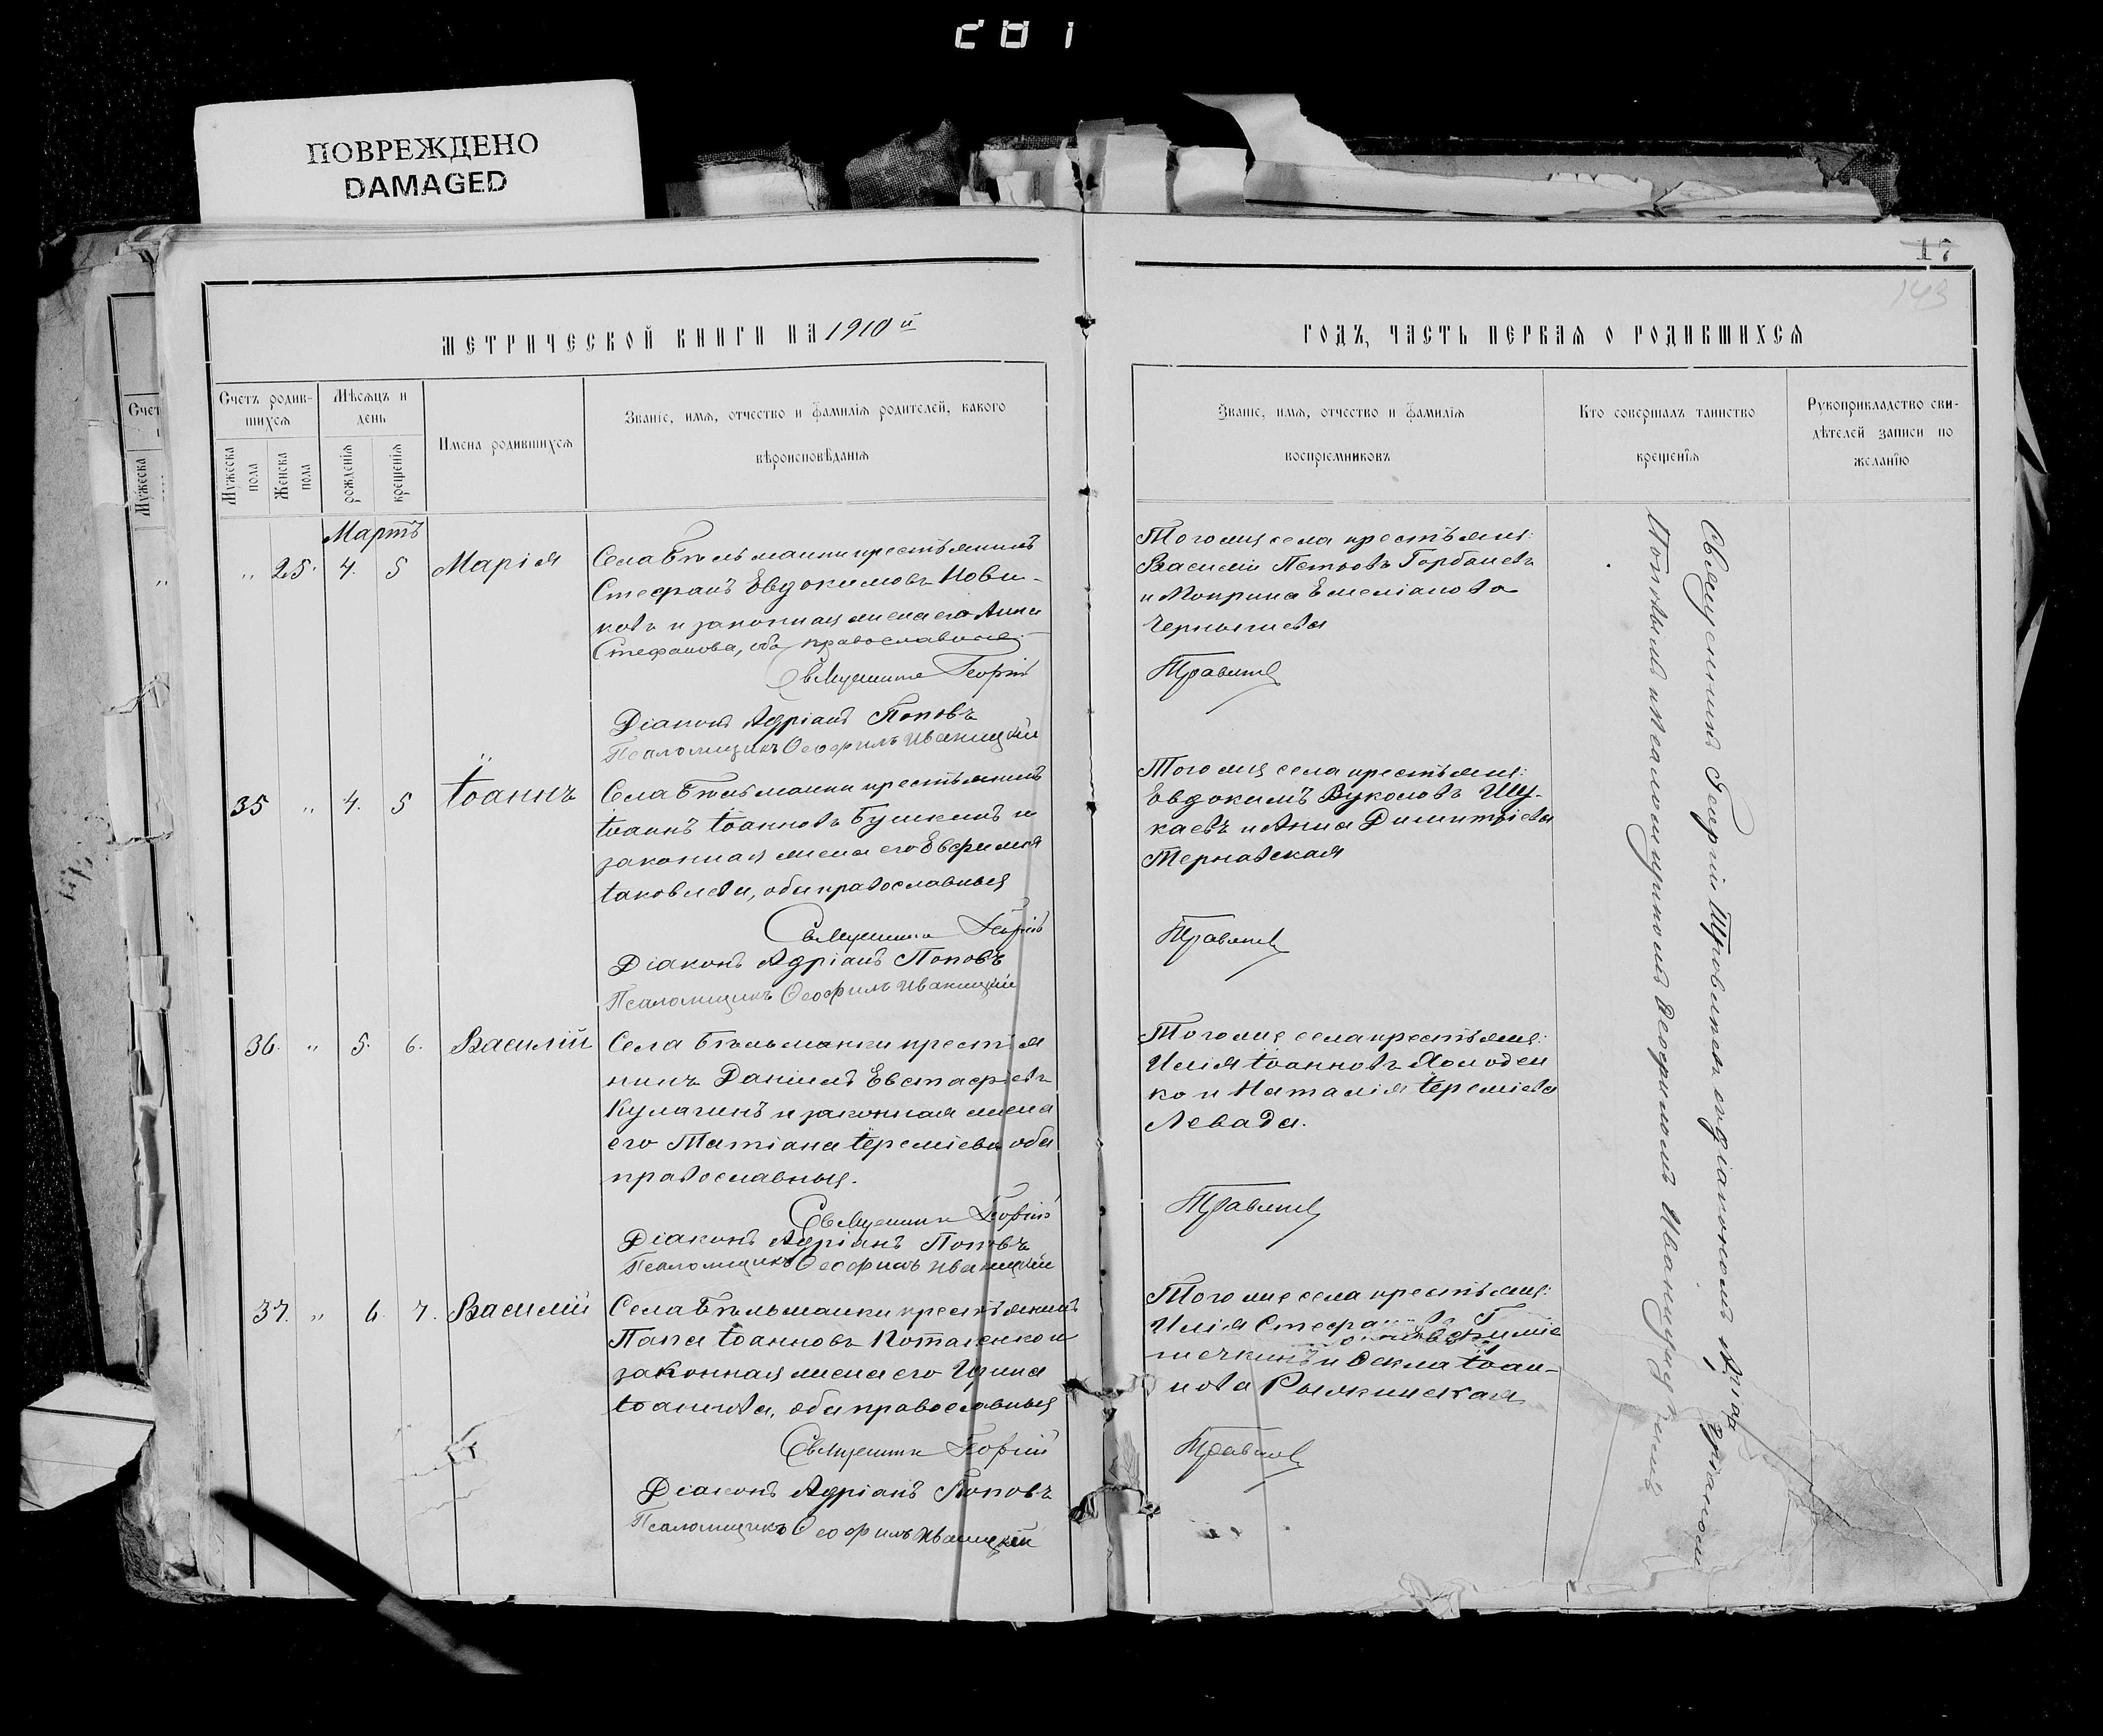 281
ПОВРЕЖДЕНО
DAMAGED
17
143
МЕТРИЧЕСКОЙ КНИГИ НА 1910й
ГОДЪ, ЧАСТЬ ПЕРВАЯ О РОДИВШИХСЯ
Счетъ родив-
шихся
Мужеска пола
Женска пола
Мѣсяцъ и
день
рожденія
крещенія
Имена родившихся
Званіе, имя, отчество и фамилія родителей, какого
вѣроисповѣданія
Званіе, имя, отчество и фамилія
воспріемниковъ
Кто совершалъ таинство
крещенія
Рукоприкладство сви-
дѣтелей записи по
желанію
Мартъ
" 25. 4. 5 Марія
Села Бѣльманки крестьянинъ
Стефанъ Евдокимовъ Нови-
ковъ и законная жена его Анна
Стефанова, оба православные.
Священникъ Георгій
Діаконъ Адріанъ Поповъ
Псаломщикъ Ѳеофилъ Иваницкій
Того же села крестьяне:
Василій Петровъ Горбачевъ
и Емеліанова
35 " 4. 5 Іоаннъ
Села Бѣльманки крестьянинъ
Іоаннъ Іоанновъ и
законная жена его Евфимія
Іаковлева, оба православныя
Священникъ Георгій
Діаконъ Адріанъ Поповъ
Псаломщикъ Ѳеофилъ Иваницкій
Того же села крестьяне:
Евдокимъ Вуколовъ Шу-
каевъ и Анна Димитріева
Терновская
36. " 5. 6. Василій
Села Бѣльманки крестья
нинъ Даніилъ Евстафіевъ
Кулагинъ и законная жена
его Татіана Іереміева оба
православныя.
Священникъ Георгій
Діаконъ Адріанъ Поповъ
Псаломщикъ Ѳеофилъ Иваницкій
Того же села крестьяне:
Илія Іоанновъ Холоден
ко и Наталія Іереміева
Левада.
37. " 6. 7. Василій
Села Бѣльманки крестьянинъ
Іоанновъ Потапенко и
законная жена его Ирина
Іоаннова, оба православныя
Священникъ Георгій
Діаконъ Адріанъ Поповъ
Псаломщикъ Ѳеофилъ Иваницкій
Того же села крестьяне:
Илія
и Ѳекла Іоан-
нова
Священникъ Георгій съ діакономъ
Поповымъ и псаломщикомъ Ѳеофиломъ Иваницкимъ